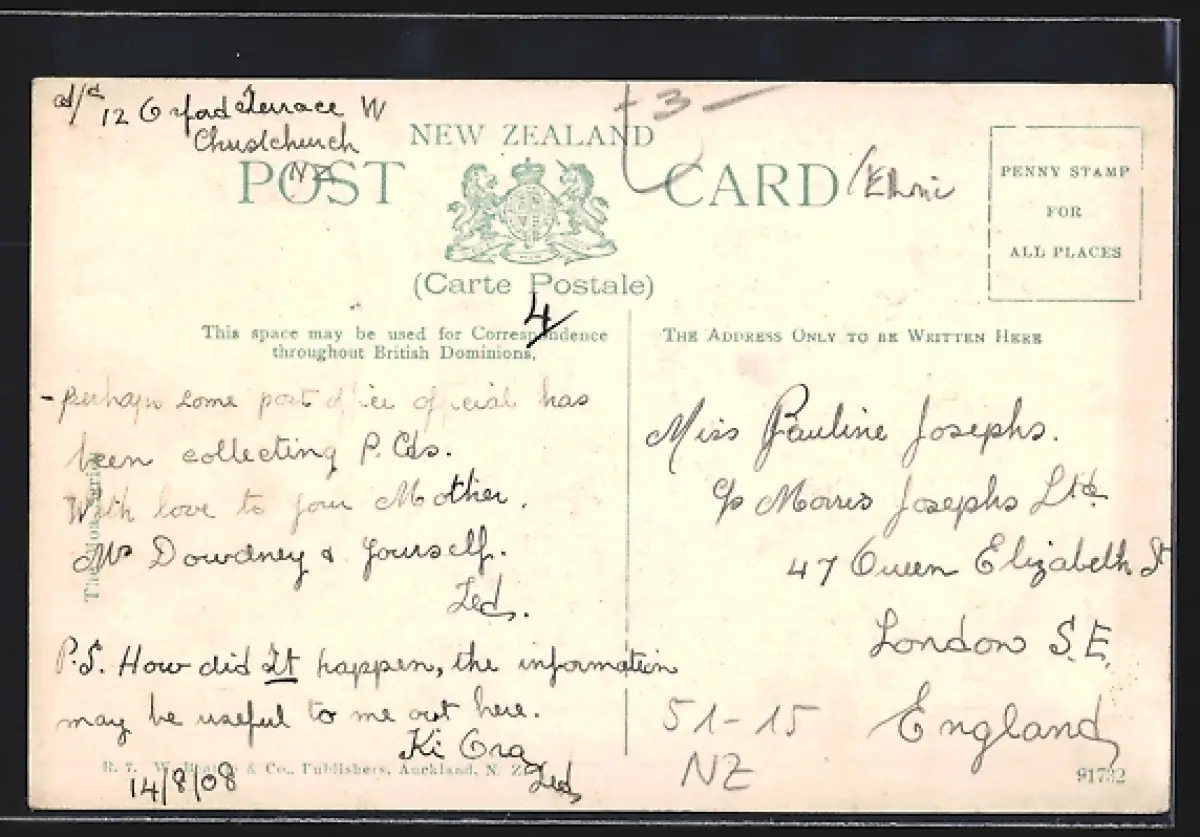 12 Oxford Terrace W
Christchurch
NZ
3
NEW ZEALAND
POST CARD
Ethnic
(Carte Postale)
PENNY STAMP
FOR
ALL PLACES
4
This space may be used for Correspondence
throughout British Dominions.
- perhaps some post office official has
been collecting P. Cds.
With love to your Mother,
Mr Dowdney & yourself.
Ted.
P.S. How did It happen, the information
may be useful to me out here.
Ki Ora
Ted
14/8/08
B. 7. W. & Co., Publishers, Auckland, N. Z.
THE ADDRESS ONLY TO BE WRITTEN HERE
Miss Pauline Josephs.
c/o Morris Josephs Ltd.
47 Queen Elizabeth St
London S.E.
England
51-15
NZ
91732